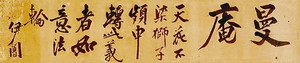 曼庵
天花不
染獅子
頻申
義
者如
意法
輪
伊